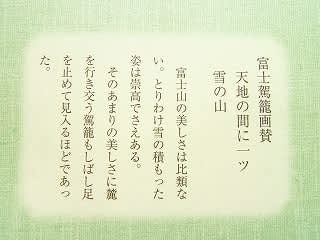 富士駕籠画賛
天地の間に一ツ
雪の山
富士山の美しさは比類な
い。とりわけ雪の積もった
姿は崇高でさえある。
そのあまりの美しさに麓
を行き交う駕籠もしばし足
を止めて見入るほどであっ
た。